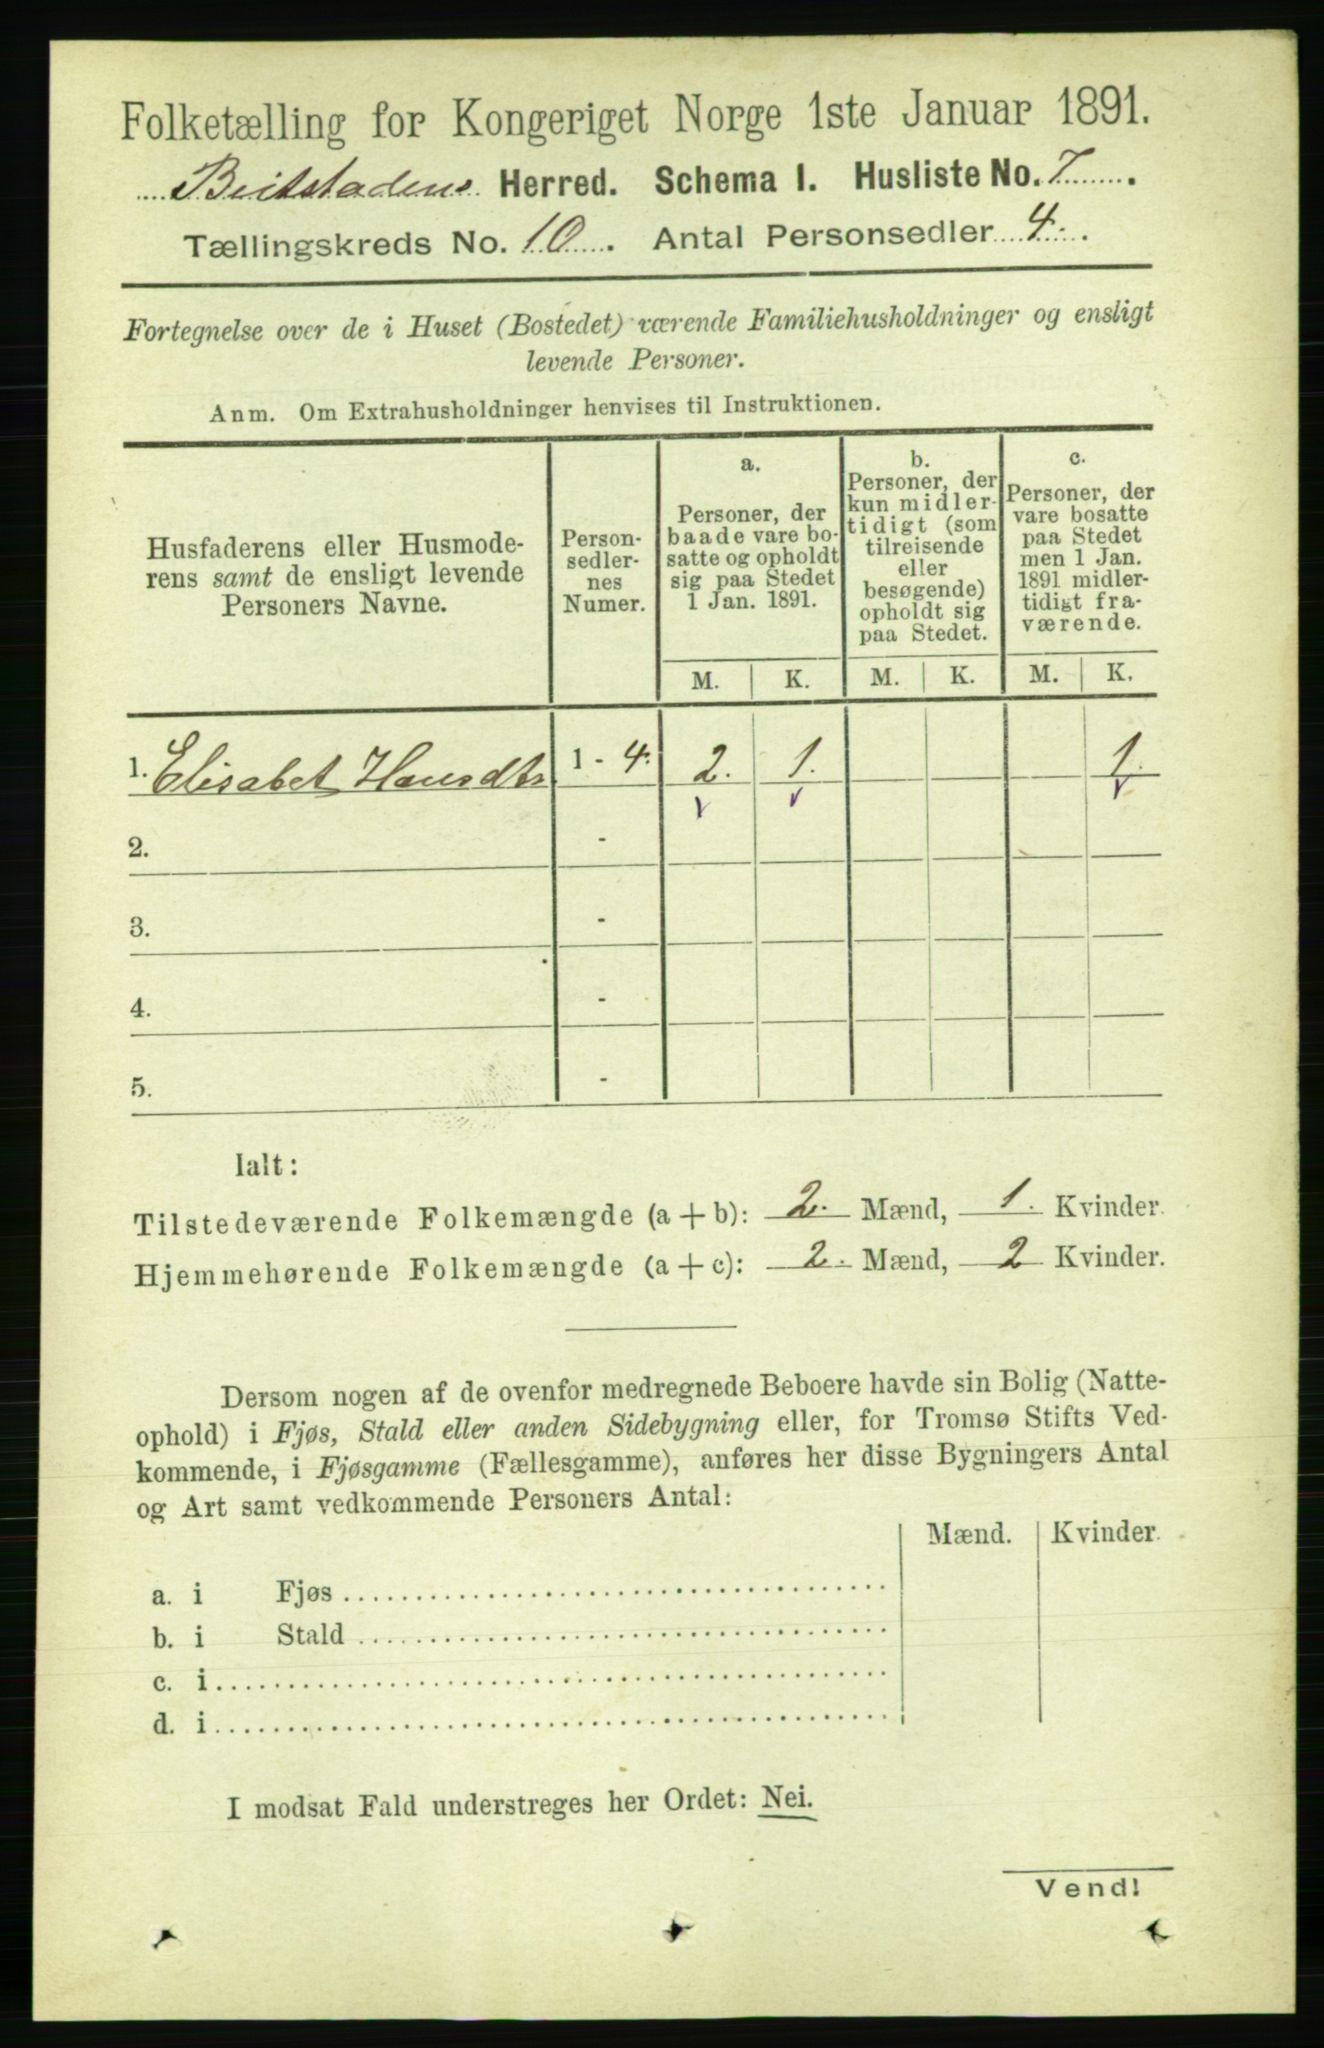 Folketælling for Kongeriget Norge 1ste Januar 1891.
Beitstadens Herred. Schema I. Husliste No. 7.
Tællingskreds No. 10. Antal Personsedler 4.
Fortegnelse over de i Huset (Bostedet) værende Familiehusholdninger og ensligt
levende Personer.
Anm. Om Extrahusholdninger henvises til Instruktionen.
Husfaderens eller Husmode-
rens samt de ensligt levende
Personers Navne.
Person-
sedler-
nes
Numer.
a.
Personer, der
baade vare bo-
satte og opholdt
sig paa Stedet
1 Jan. 1891.
b.
Personer, der
kun midler-
tidigt (som
tilreisende
eller
besøgende)
opholdt sig
paa Stedet.
c.
Personer, der
vare bosatte
paa Stedet
men 1 Jan.
1891 midler-
tidigt fra-
værende.
M. K. M. K. M. K.
1. Elisabet Hansdtr 1 - 4. 2. 1. 1.
2. -
3. -
4. -
5. -
Ialt:
Tilstedeværende Folkemængde (a + b): 2. Mænd, 1. Kvinder.
Hjemmehørende Folkemængde (a + c): 2. Mænd, 2 Kvinder.
Dersom nogen af de ovenfor medregnede Beboere havde sin Bolig (Natte-
ophold) i Fjøs, Stald eller anden Sidebygning eller, for Tromsø Stifts Ved-
kommende, i Fjøsgamme (Fællesgamme), anføres her disse Bygningers Antal
og Art samt vedkommende Personers Antal:
Mænd. Kvinder.
a. i Fjøs
b. i Stald
c. i
d. i
I modsat Fald understreges her Ordet: Nei.
Vend!